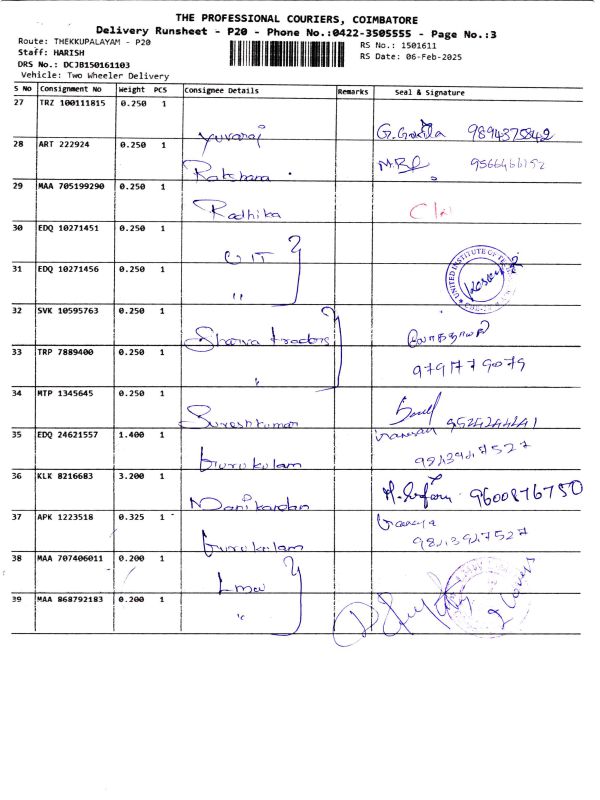 THE PROFESSIONAL COURIERS, COIMBATORE
Delivery Runsheet - P20 - Phone No.:0422-3505555 - Page No.:3
Route: THEKKUPALAYAM - P20
RS No.: 1501611
Staff: HARISH
RS Date: 06-Feb-2025
DRS No.: DCJB150161103
Vehicle: Two Wheeler Delivery
S No Consignment No Weight PCS Consignee Details Remarks Seal & Signature
27 TRZ 100111815 0.250 1
Yuvaraj 9894375842
28 ART 222924 0.250 1
Rakshana
29 MAA 705199290 0.250 1
Radhika
30 EDQ 10271451 0.250 1
UIT
31 EDQ 10271456 0.250 1
"
UNITED INSTITUTE OF
32 SVK 10595763 0.250 1
traders
33 TRP 7889400 0.250 1
" 9791779079
34 MTP 1345645 0.250 1
Sureshkumar
35 EDQ 24621557 1.400 1
Gurukulam
36 KLK 8216683 3.200 1
Manikandan 9600876750
37 APK 1223518 0.325 1
Gurukulam
38 MAA 707406011 0.200 1
39 MAA 868792183 0.200 1
"